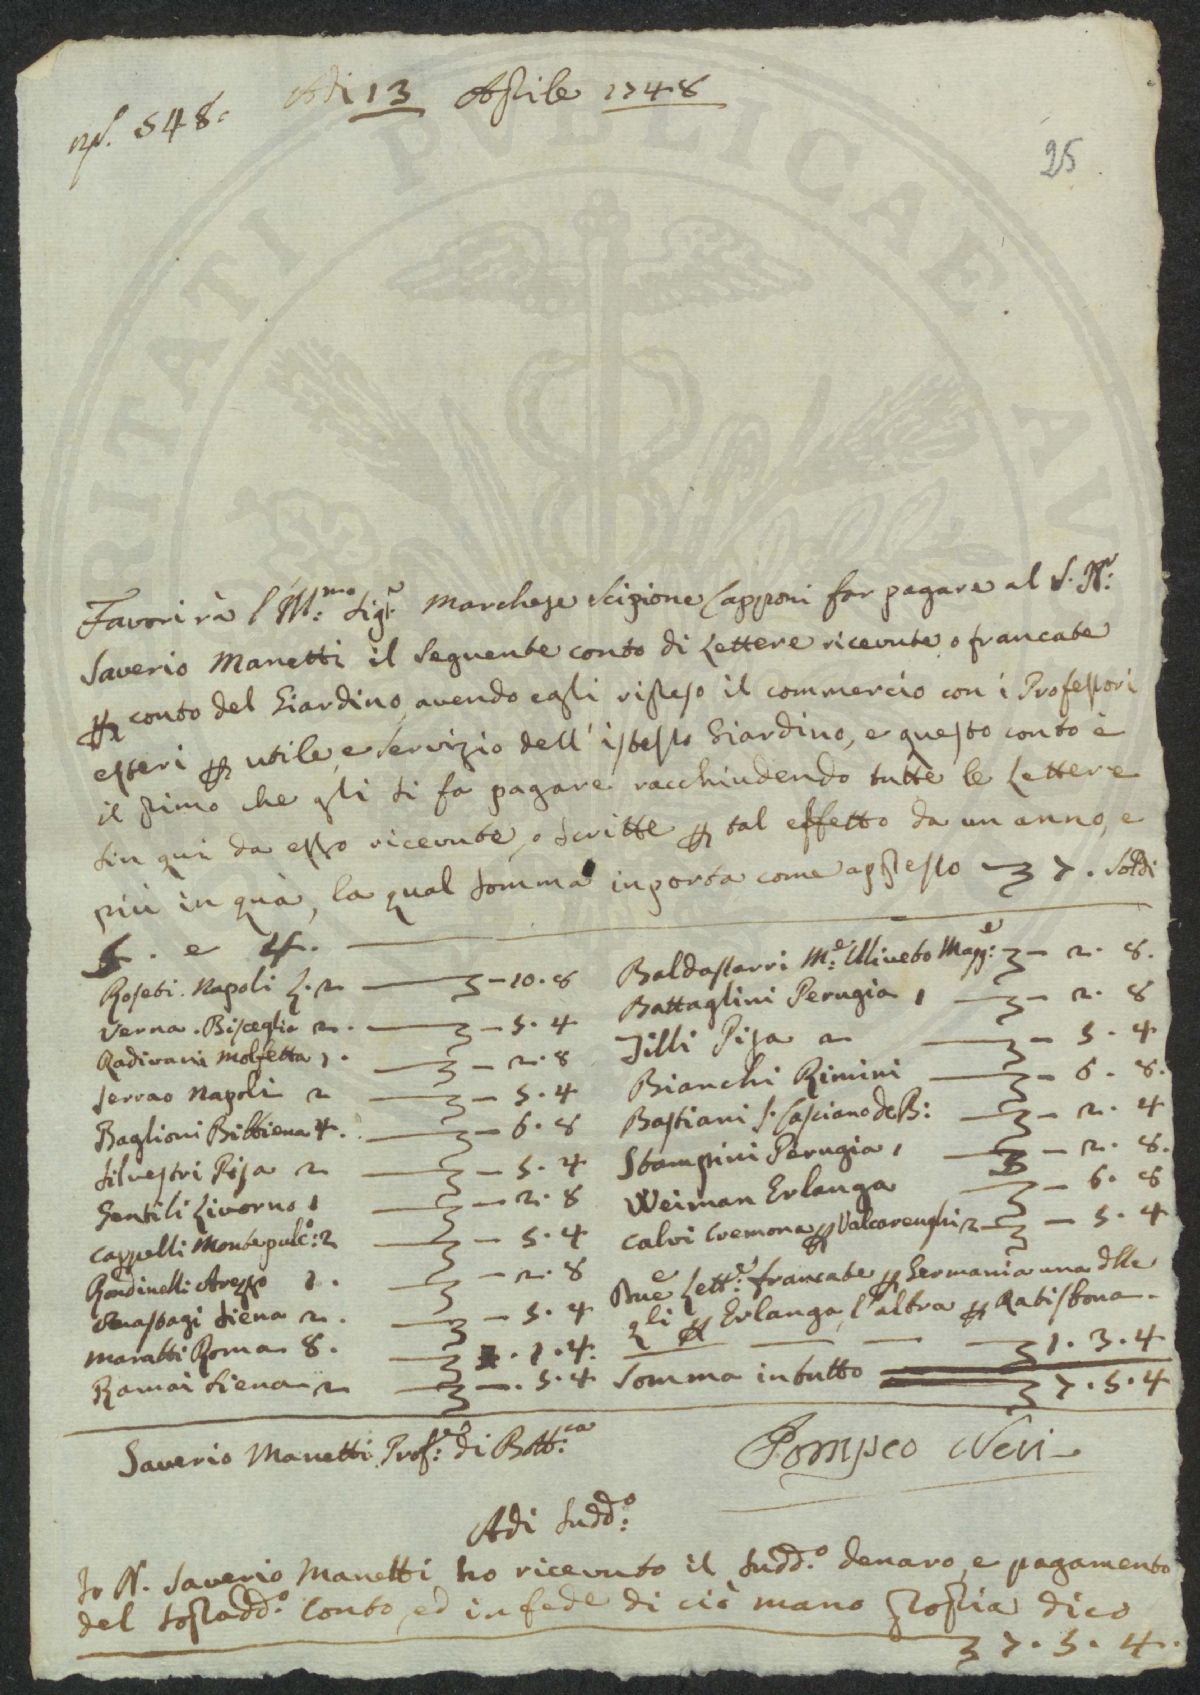 Adi 13 Aprile 1748
n°. 548.
25
Favorirà l'Ill:mo Sigr.e Marchese Scipione Capponi far pagare al S. Dr:
Saverio Manetti il seguente conto di Lettere ricevute, o francate
p conto del Giardino, avendo egli ripreso il commercio con i Professori
esteri p utile, e servizio dell'istesso Giardino, e questo conto è
il primo che gli si fa pagare racchiudendo tutte le Lettere
sin qui da esso ricevute, o scritte p tal effetto da un anno, e
più in quà, la qual somma inporta come appresso — 7. Soldi
5. e 4.
Roseti. Napoli L. 2 — 10. 8
Verna. Bisceglia 2. — 5. 4
Radivani Molfetta 1. — 2. 8
Serrao Napoli 2 — 5. 4
Baglioni Bibbiena 4. — 6. 8
Silvestri Pisa 2 — 5. 4
Gentili Livorno 1 — 2. 8
Cappelli Montepulc:o 2 — 5. 4
Rondinelli Arezzo 1. — 2. 8
Siena 2. — 5. 4
Maratti Roma 8. — 1. 1. 4.
Ramai Siena 2 — . 5. 4
Baldasarri M:e Uliveto Magg:e — 2. 8.
Battaglini Perugia 1 — 2. 8
Tilli Pisa 2 — 5. 4
Bianchi Rimini — 6. 8.
Bastiani S. Casciano de B: — 2. 4
Stampini Perugia 1 — 2. 8.
Weiman Erlanga — 6. 8
Calvi Cremona p Valcarenghi 2 — 5. 4
Due Lett:e francate p Germania una dlle
qli p Erlanga, l'altra p Ratisbona.
— 1. 3. 4
Somma in tutto — 7. 5. 4
Saverio Manetti Prof:e di Bott:ca
Pompeo Neri
Adi sudd:o
Io Dr. Saverio Manetti ho ricevuto il sudd:o denaro, e pagamento
del sopradd:o Conto, ed in fede di ciò mano propria dico
— 7. 5. 4.
PUBLICAE